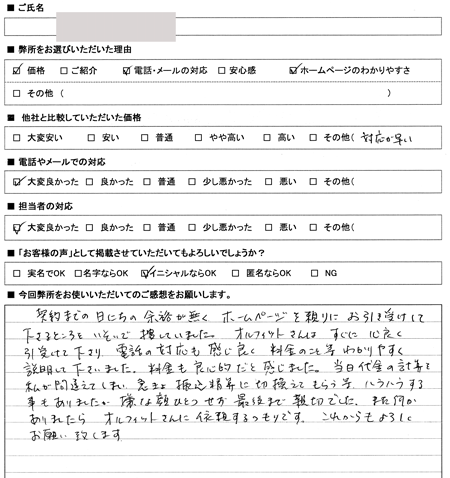 ■ ご氏名
■ 弊所をお選びいただいた理由
☑ 価格 □ご紹介 ☑電話・メールの対応 □安心感 ☑ホームページのわかりやすさ
□ その他（ ）
■ 他社と比較していただいた価格
□ 大変安い □ 安い □ 普通 □ やや高い □ 高い □ その他( 対応が早い
■ 電話やメールでの対応
☑ 大変良かった □ 良かった □ 普通 □ 少し悪かった □ 悪い □ その他(
■ 担当者の対応
☑ 大変良かった □ 良かった □ 普通 □ 少し悪かった □ 悪い □ その他(
■「お客様の声」として掲載させていただいてもよろしいでしょうか？
□ 実名でOK □名字ならOK ☑イニシャルならOK □ 匿名ならOK □ NG
■ 今回弊所をお使いいただいてのご感想をお願いします。
契約までの日にちの余裕が無く ホームページを頼りにお引き受けして
下さるところをいそいで捜していました。オルフィットさんは すぐに 心良く
引受けて下さり 電話の対応も感じ良く 料金のこと等 わかりやすく
説明して下さいました。料金も良心的だと感じました。当日代金の計算を
私が間違えてしまい、急きょ振込精算に切換えてもらう等、ハラハラする
事もありましたが 嫌な顔ひとつせず 最後まで親切でした。また何か
ありましたら オルフィットさんに依頼するつもりです。これからもよろしく
お願い致します